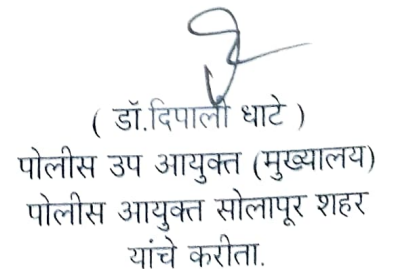 ( डॉ.दिपाली धाटे )
पोलीस उप आयुक्त (मुख्यालय)
पोलीस आयुक्त सोलापूर शहर
यांचे करीता.